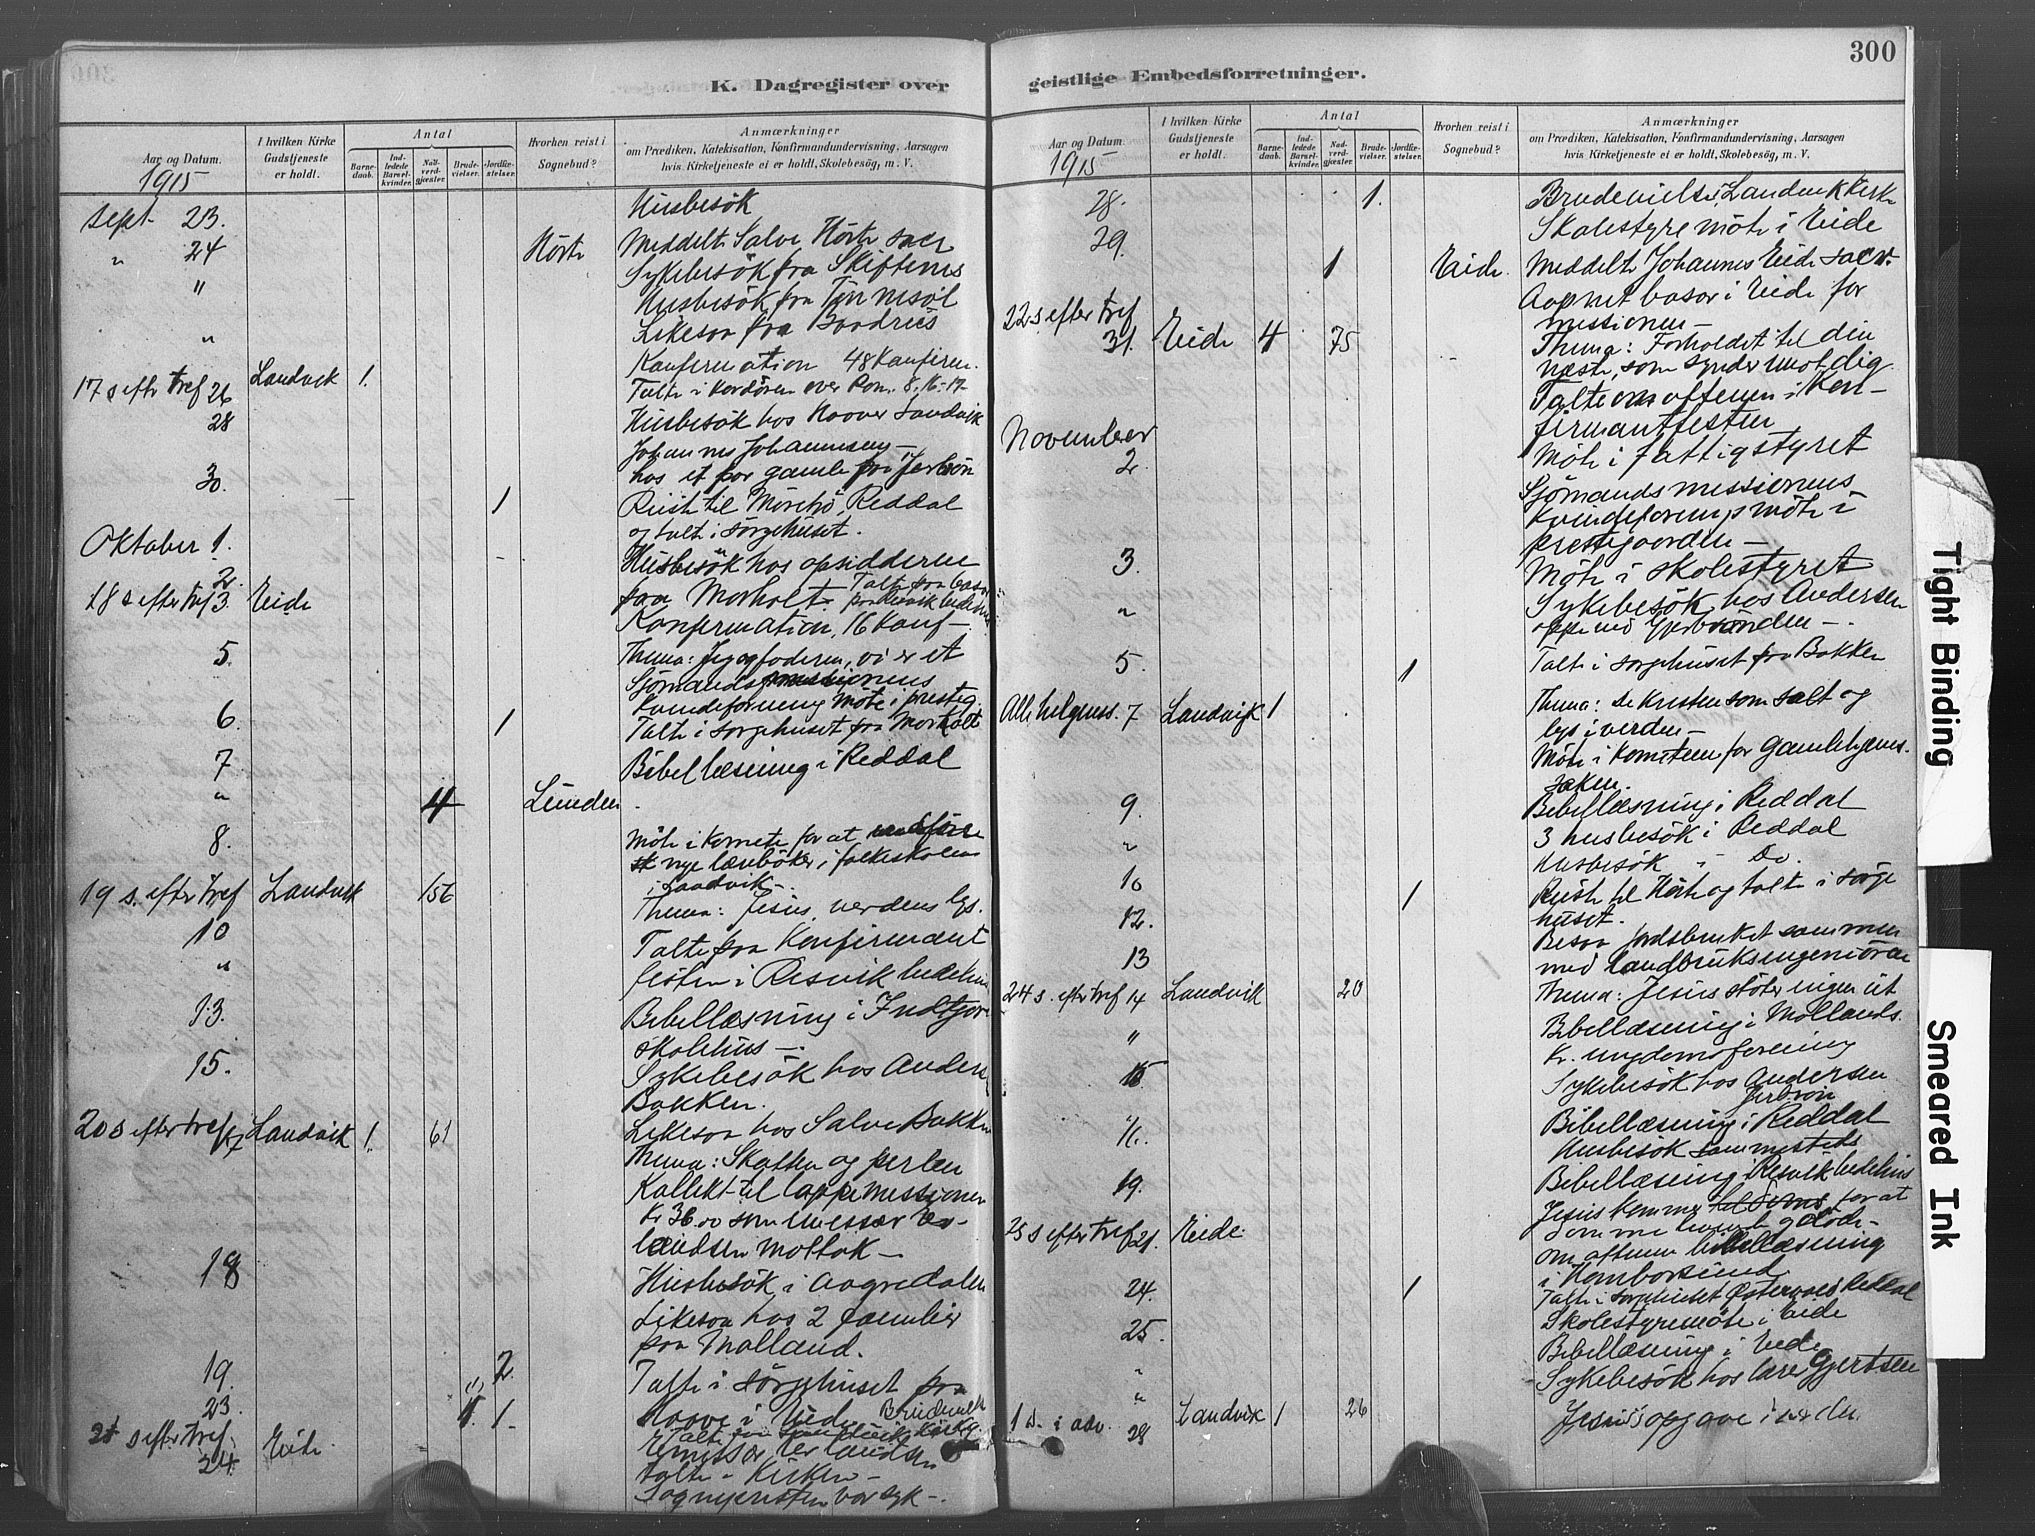 300
K. Dagregister over
Aar og Datum.
I hvilken Kirke
Gudstjeneste
er holdt.
Antal
Barne-
daab.
Ind-
ledede
Barsel-
kvinder.
Nad-
verd-
gjæster.
Brude-
vielser.
Jordfæ-
stelser.
Hvorhen reist i
Sognebud?
Anmærkninger
om Prædiken, Katekisation, Konfirmandundervisning, Aarsagen
hvis Kirketjeneste ei er holdt, Skolebesög, m. V.
1915
Sept 23. Husbesök
" 24 Hörte Meddelt Salve Hörte sacr
Sykebesök fra Skiftenes
" Husbesök fra Tönnesöl
" Likesaa fra
Konfirmation 48 Konfirm.
17 s eftr tref 26 Landvik 1. Talte i Kordören over Rom. 8. 16-17-
28 Husbesök hos Haaver Landvik
Johannes Johannesen
30. hos et par gamle fra
1 Reiste til Mörkjö, Reddal
og talt i sörgehuset.
Oktober 1. Husbesök hos opsidderne
2. paa Morholt Talte paa
18 s efter tref 3. Eide Konfirmation, 16 Konf.
5. Thema: Jeg og faderen, vi er et
Sjömandsmissionens
Kvindeforening möte i prestg.
6. 1 Talte i sorgehuset fra Morholt
7 Bibellæsning i Reddal
" 4 Lunden
8. Möte i Komite for at
nye læreböker i folkeskolen
i Landvik
19 s. efter tref Landvik 156 Thema: Jesus, verdens lys.
10 Talte paa Konfirmant
" festen i Resvik bedehus
13. Bibellæsning i Indtjore
skolehus -
15. Sykebesök hos Anders
Bakken.
20 s efter tref 17 Landvik 1. 61 Likesaa hos Salve Bakken
Thema: Skatten og perlen
Kollekt til lappemissionen
Kr 36.00 som emissær Er-
landsen mottok -
18 Husbesök i Aagredalen
Likesaa hos 2 familier
paa Molland.
19. 2. Talte i sörgehuset paa
23. 1. 1. Haave i Eide Brudevielse
21 s efter tref. 24. Eide Emissær Erlandsen
talte i Kirken -
Sognepresten var syk -.
geistlige Embedsforretninger.
Aar og Datum.
I hvilken Kirke
Gudstjeneste
er holdt.
Antal
Barne-
daab.
Ind-
ledede
Barsel-
kvinder.
Nad-
verd-
gjæster.
Brude-
vielser.
Jordfæ-
stelser.
Hvorhen reist i
Sognebud?
Anmærkninger
om Prædiken, Katekisation, Konfirmandundervisning, Aarsagen
hvis Kirketjeneste ei er holdt, Skolebesög, m. V.
1915
28. 1. Brudevielse i Landvik Kirke
29. Skolestyremöte i Eide
1 Eide. Meddelte Johannes Eide sacr.
Aapnet basar i Eide for
missionen -
22 s efter tref 31. Eide 4 75 Thema: Forholdet til din
næste, som synder mot dig.
Talte om aftenen i Kon-
firmantfesten
November 2. Möte i fattigstyret
Sjömandsmissionens
Kvindeforenings möte i
prestegaarden -
3. Möte i skolestyret
" Sykebesök hos Andersen
oppe ved
5. 1 Talte i sorgehuset fra Bakken
Allehelgenss. 7 Landvik 1 Thema: De Kristen som salt og
lys i verden -
Möte i Komiteen for Gamlehjems.
saken.
9. Bibellæsning i Reddal
" 3 husbesök i Reddal
10 Husbesök " - Do.
12. 1 Reiste til Hörte og talte i sörge
huset.
13 Besaa jordsbruket sammen
med landbruksingeniören
24 s. efter tref 14 Landvik 20 Thema: Jesus stöter ingen ut
" Bibellæsning i Mollands
Kr. ungdomsforening
15 Sykebesök hos Andersen
16. Bibellæsning i Reddal
Husbesök sammesteds
19. Bibellæsning i Resvik bedehus
25 s efter tref 21. Eide. Jesus kommer for at
dömme levende og döde -
om aftenen bibellæsning
i Homborsund
24. 1 Talte i sorgehuset Östervold Reddal
25. Skolestyremöte i Eide
" Bibellæsning i Eide
" Sykebesök hos Lars Gjertsen
1 s. i adv. 28 Landvik 1 26 Jesus's opgave i verden.
Tight Binding
Smeared Ink